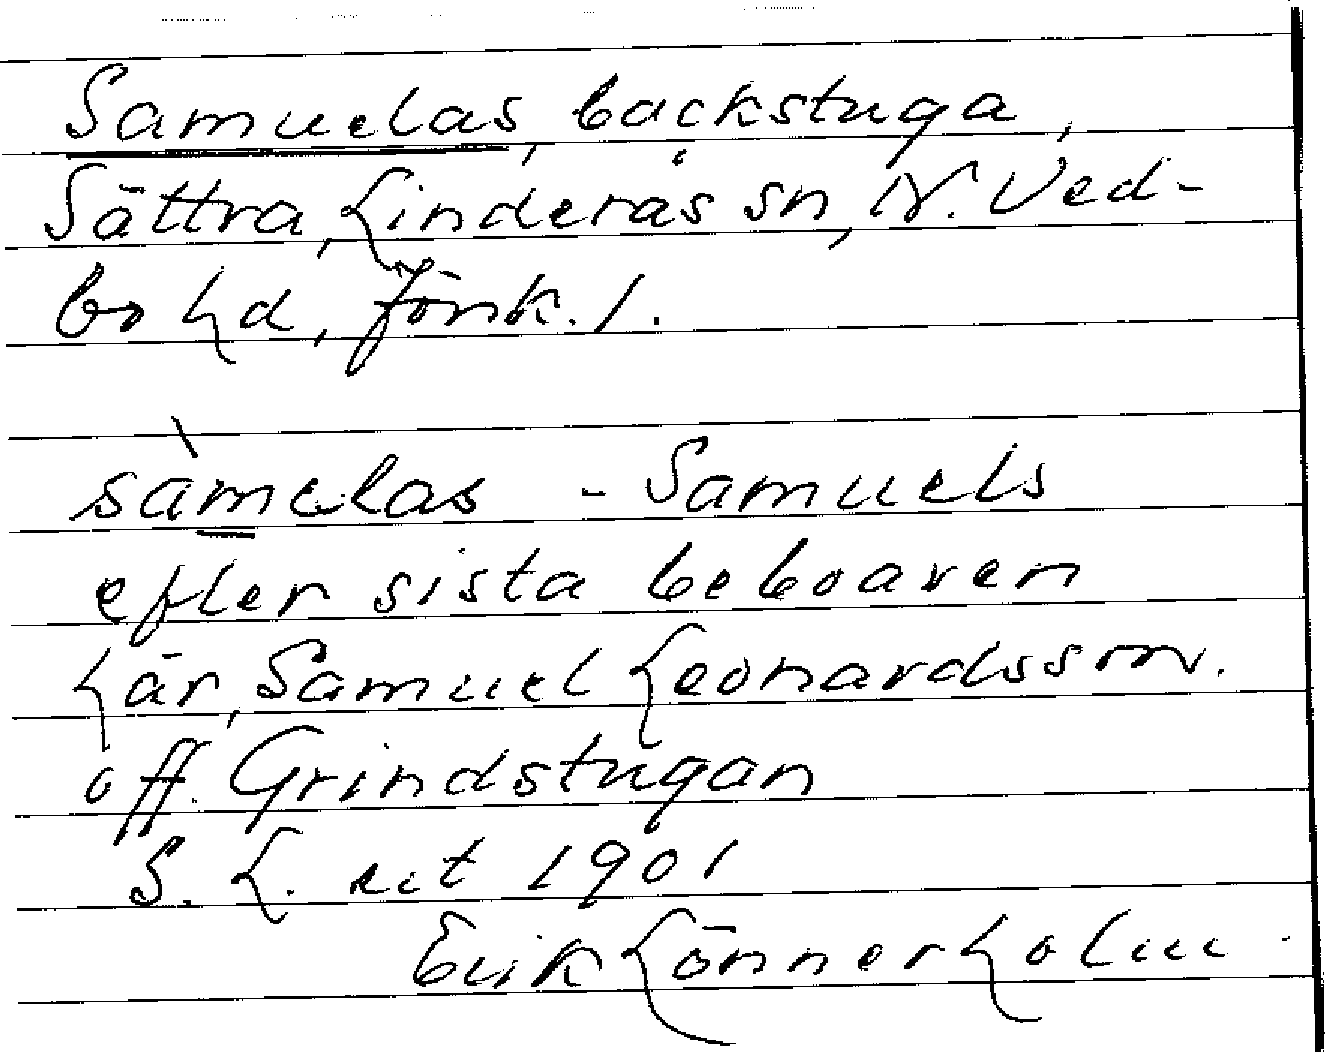 Samuelas, backstuga,
Sättra, Linderås sn, N. Ved-
bo hd, Jönk. l.
sàmelas - Samuels
efter sista beboaren
här, Samuel Leonardsson.
off. Grindstugan
S. L. ut 1901
Erik Lönnerholm